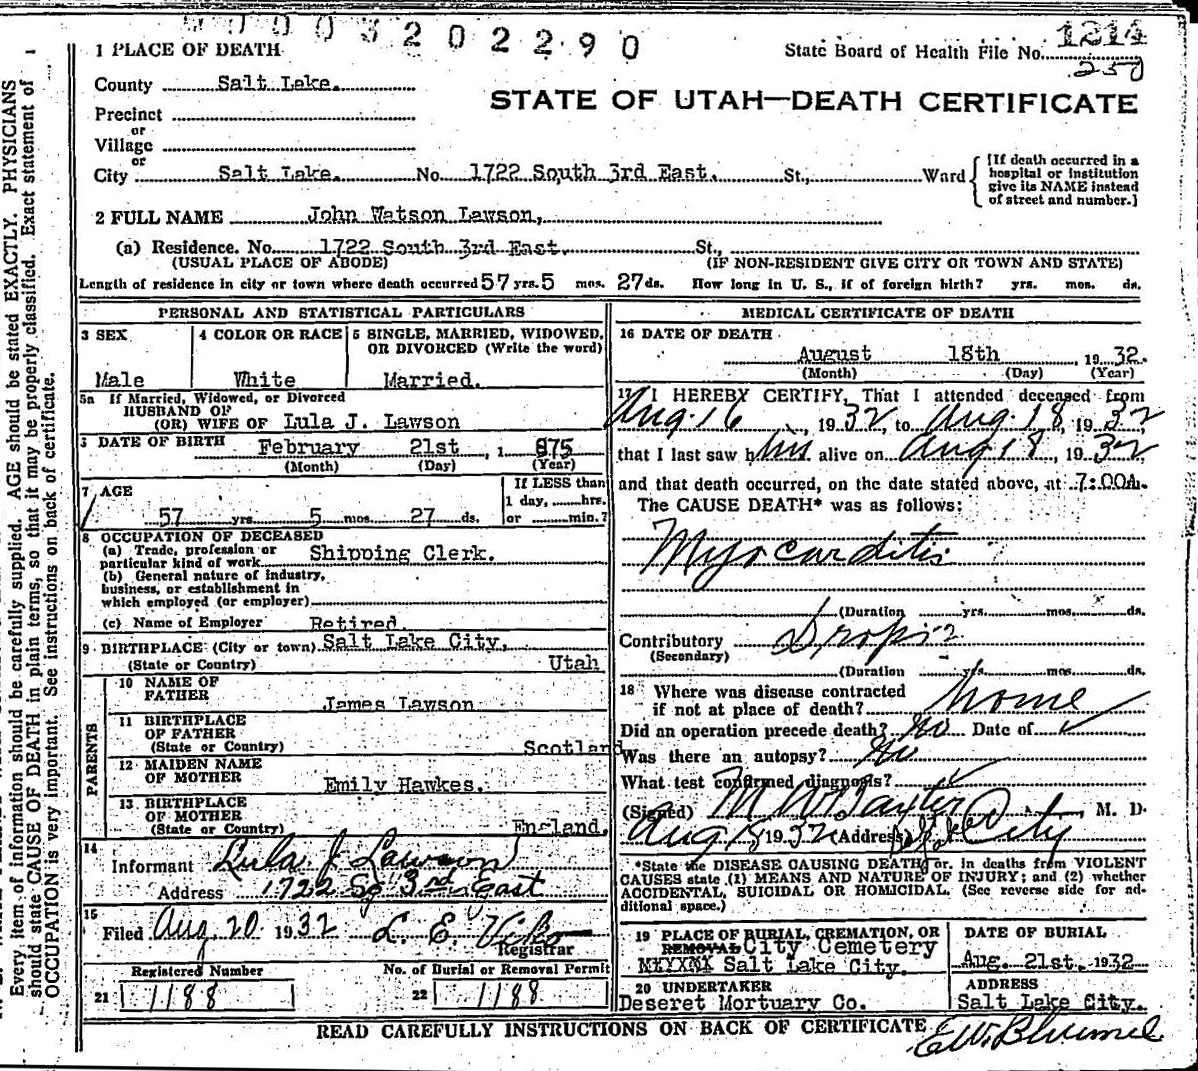 0003202290
State Board of Health File No. 1214
250
1 PLACE OF DEATH
County Salt Lake.
STATE OF UTAH—DEATH CERTIFICATE
Precinct
or
Village
or
City Salt Lake. No. 1722 South 3rd East. St., Ward
[If death occurred in a
hospital or institution
give its NAME instead
of street and number.]
2 FULL NAME John Watson Lawson,
(a) Residence. No. 1722 South 3rd East. St.,
(USUAL PLACE OF ABODE) (IF NON-RESIDENT GIVE CITY OR TOWN AND STATE)
Length of residence in city or town where death occurred 57 yrs. 5 mos. 27 ds. How long in U. S., if of foreign birth? yrs. mos. ds.
PERSONAL AND STATISTICAL PARTICULARS
3 SEX
Male
4 COLOR OR RACE
White
5 SINGLE, MARRIED, WIDOWED,
OR DIVORCED (Write the word)
Married.
5a If Married, Widowed, or Divorced
HUSBAND OF
(OR) WIFE OF Lula J. Lawson
DATE OF BIRTH February 21st, 1 875
(Month) (Day) (Year)
7 AGE
57 yrs. 5 mos. 27 ds.
If LESS than
1 day, hrs.
or min.?
8 OCCUPATION OF DECEASED
(a) Trade, profession or
particular kind of work Shipping Clerk.
(b) General nature of industry,
business, or establishment in
which employed (or employer)
(c) Name of Employer Retired
9 BIRTHPLACE (City or town) Salt Lake City,
(State or Country) Utah
PARENTS
10 NAME OF
FATHER James Lawson
11 BIRTHPLACE
OF FATHER
(State or Country) Scotland
12 MAIDEN NAME
OF MOTHER Emily Hawkes.
13 BIRTHPLACE
OF MOTHER
(State or Country) England.
14
Informant Lula J Lawson
Address 1722 So 3rd East
15
Filed Aug 20 1932 L. E. Viko
Registrar
Registered Number
21 1188
No. of Burial or Removal Permit
22 1188
MEDICAL CERTIFICATE OF DEATH
16 DATE OF DEATH
August 18th, 1932.
(Month) (Day) (Year)
17 I HEREBY CERTIFY, That I attended deceased from
Aug. 16, 1932, to Aug. 18, 1932,
that I last saw him alive on Aug 18, 1932
and that death occurred, on the date stated above, at 7:00A.
The CAUSE DEATH* was as follows:
Myocarditis
(Duration yrs. mos. ds.
Contributory Dropsy
(Secondary)
(Duration yrs. mos. ds.
18 Where was disease contracted
if not at place of death? home
Did an operation precede death? No Date of
Was there an autopsy? No
What test confirmed diagnosis?
(Signed) M W Baxter, M. D.
Aug 18 1932 (Address) City
*State the DISEASE CAUSING DEATH, or, in deaths from VIOLENT
CAUSES state (1) MEANS AND NATURE OF INJURY; and (2) whether
ACCIDENTAL, SUICIDAL OR HOMICIDAL. (See reverse side for ad-
ditional space.)
19 PLACE OF BURIAL, CREMATION, OR
REMOVAL City Cemetery
Salt Lake City.
DATE OF BURIAL
Aug. 21st. 1932
20 UNDERTAKER
Deseret Mortuary Co.
ADDRESS
Salt Lake City.
READ CAREFULLY INSTRUCTIONS ON BACK OF CERTIFICATE
Every item of information should be carefully supplied. AGE should be stated EXACTLY. PHYSICIANS
should state CAUSE OF DEATH in plain terms, so that it may be properly classified. Exact statement of
OCCUPATION is very important. See instructions on back of certificate.